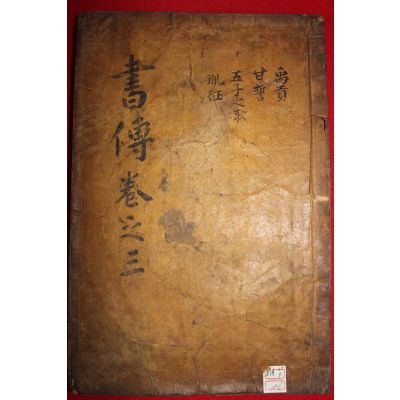 禹貢
甘誓
五子之歌
胤征
書傳卷之三